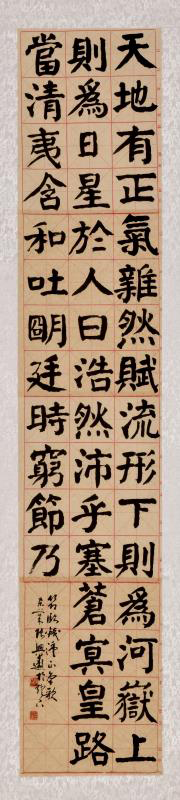 天地有正氣雜然賦流形下則為河嶽上
則為日星於人曰浩然沛乎塞蒼冥皇路
當清夷含和吐明廷時窮節乃